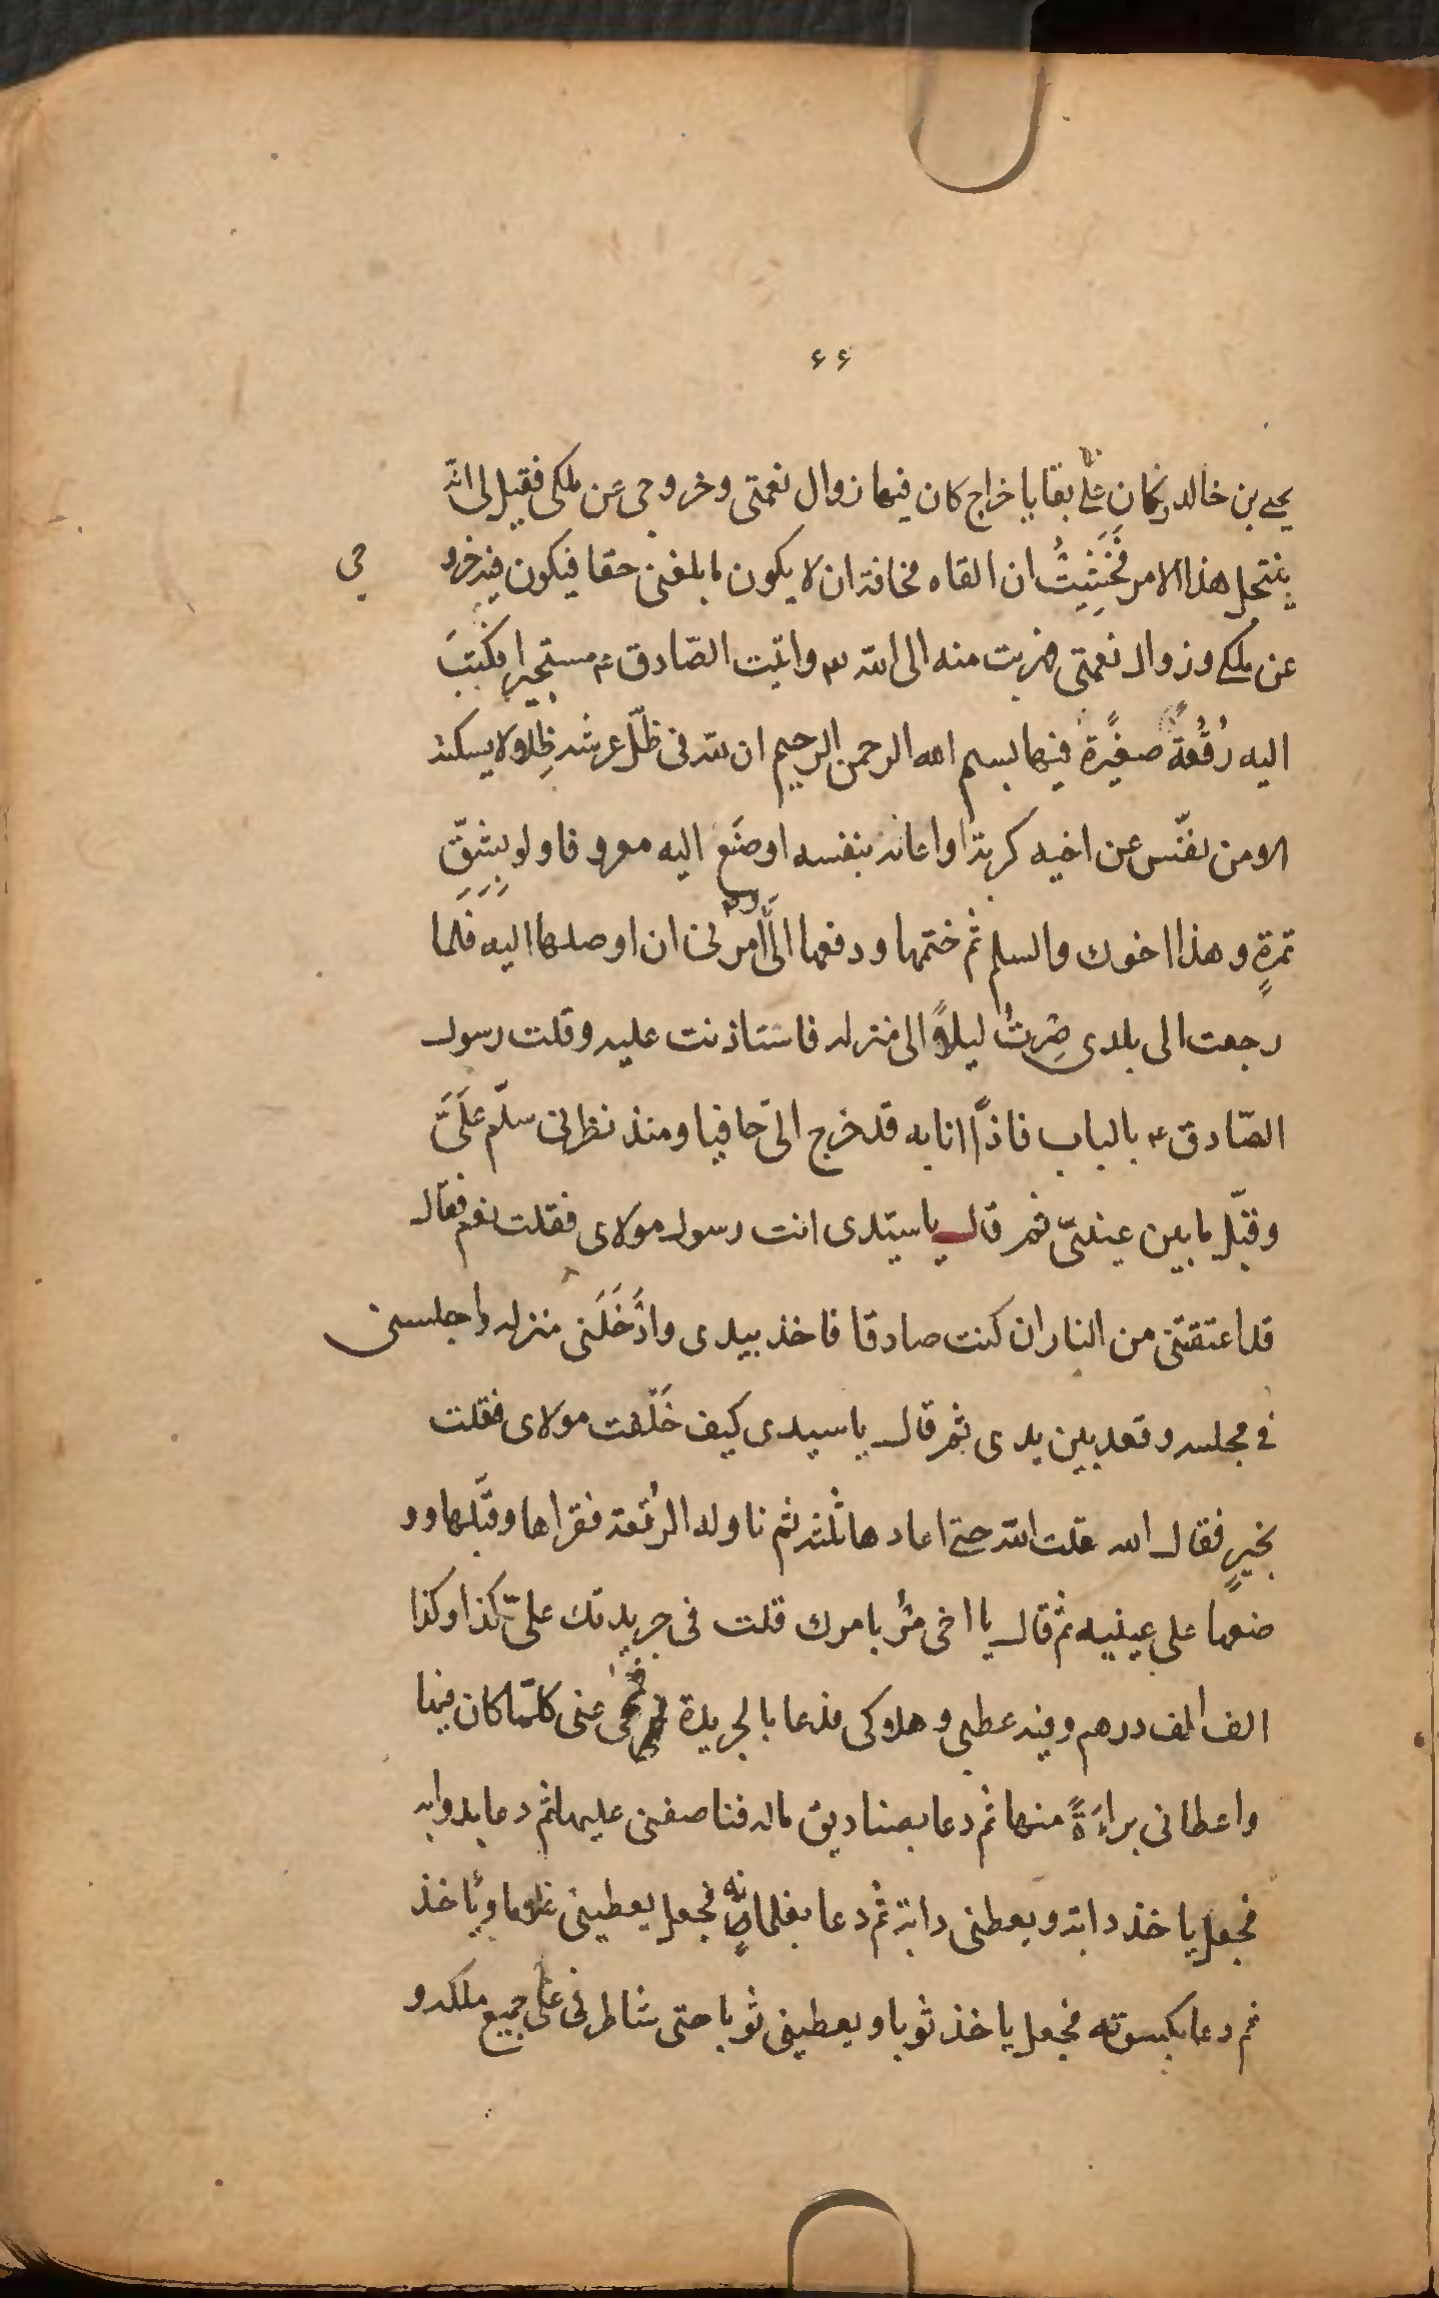 ۶۶
يحيى بن خالد وكان علىّ بقايا خراج كان فيها زوال نعمتى وخروجى عن ملكى فقيل لى انّه
ينتحل هذا الامر فَخَشِيتُ ان القاه مخافة ان لا يكون ما بلغنى حقا فيكون فيه خرو جى
عن ملكى وزوال نعمتى فهربت منه الى الله تع واتيت الصّادق ع مستجيرا فكَتبَ
اليه رُقْعةً صغيَرةً فيها بسم الله الرحمن الرحيم ان لله فى ظلّ عرشه ظِلالا لا يسكنه
الا من نفّس عن اخيه كربة او اعانه بنفسه او صنَع اليه معروفا ولو بِشِقِّ
تمرةٍ وهذا اخوك والسلم ثم ختمها ودفعها الىَّ وامرنى ان اوصلها اليه فلَما
رجعت الى بلدى صِرتُ ليلاً الى منزله فاستاذنت عليه وقلت رسول
الصّادق ع بالباب فاذاً انا به قد خرج الىّ حافيا ومنذ نظرنى سلّم علَىَّ
وقبّل ما بين عينىّ ثم قال يا سيّدى انت رسول مولاى فقلت نعم فقال
قد اعتقتنى من النار ان كنت صادقا فاخذ بيدى وادْخَلَنى منزله واجلسنى
فى مجلسه وقعد بين يدى ثم قال يا سيدى كيف خَلّفت مولاى فقلت
بخيرٍ فقال الله قلت الله حتى اعادها ثلثه ثم ناوله الرُقعة فقراها وقبَّلها وو
ضعها على عينيه ثم قال يا اخى مُرْ بامرك قلت فى جريدتك علىّ كذا وكذا
الف الف درهم وفيه عطبى وهلاكى فدعا بالجريدة فمحى عنى كلّما كان فيها
واعطانى براءةً منها ثم دعا بصناديق ماله فناصفنى عليها ثم دعا بدوابه
فجعل ياخذ دابة ويعطنى دابة ثم دعا بغلمانه فجعل يعطينى غلاما وياخذ
ثم دعا بكسوته فجعل ياخذ ثوبا ويعطينى ثوبا حتى شاطرنى على جميع ملكه و